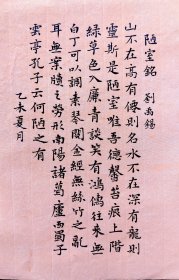 陋室銘 劉禹錫
山不在高有僊則名水不在深有龍則
靈斯是陋室唯吾德馨苔痕上階
綠草色入廉青談笑有鴻儒往來無
白丁可以調素琴閱金經無絲竹之亂
耳無案牘之勞形南陽諸葛廬西蜀子
雲亭孔子云何陋之有
乙未夏月